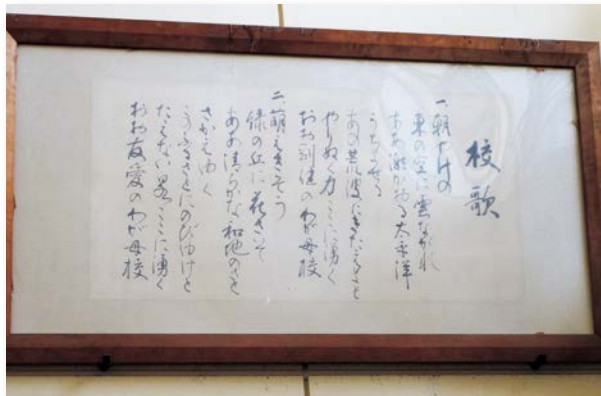 校歌
一、朝やけの
東の空に雲ながれ
ああ潮かおる太平洋
うちよせる
あの荒波にきたえよと
やりぬく力ここに湧く
おお剛健のわが母校
二、萌えきそう
緑の丘に花さいて
ああ清らかな和地のさと
さかえゆく
ふるさとにのびゆけと
たえない ここに湧く
おお友愛のわが母校